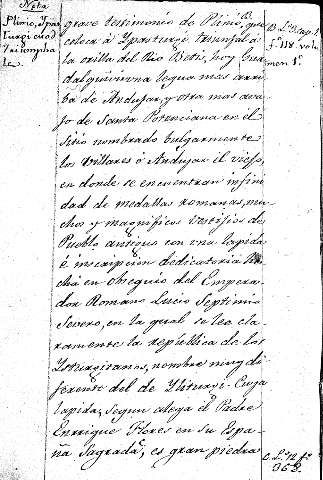 Nota
Plinio, Ipas
turgi ciud.
Triumpha
le.
grave testimonio de Plinio B, que
coloca á Ypasturgi triunfal á
la orilla del Rio Betis, hoy Gua
dalquivir vna legua mas arri
ba de Andujar, y otra mas abajo
de Santa Potenciana en el
sitio nombrado bulgarmente
los Villares ó Andujar el viejo,
en donde se encuentran infini
dad de medallas romanas, mu
chos y magnificos vestigios de
Pueblo antiguo con vna lapida
é inscripcion dedicatoria he
cha en obsequio del Empera
dor Romano Lucio Septimio
Severo, en la qual se lee cla
ramente la republica de los
Ysturgitanos, nombre muy di
ferente del de Yliturgi. Cuya
lapida, segun alega el Padre
Enrrique Flores en su Espa
ña Sagrada, es gran piedra
B. L. 3. cap. 1.
fº 118. volu
men 1º
C. Lº 12 fº
368.